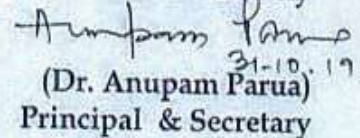 Anupam Parua
31-10.19
(Dr. Anupam Parua)
Principal & Secretary